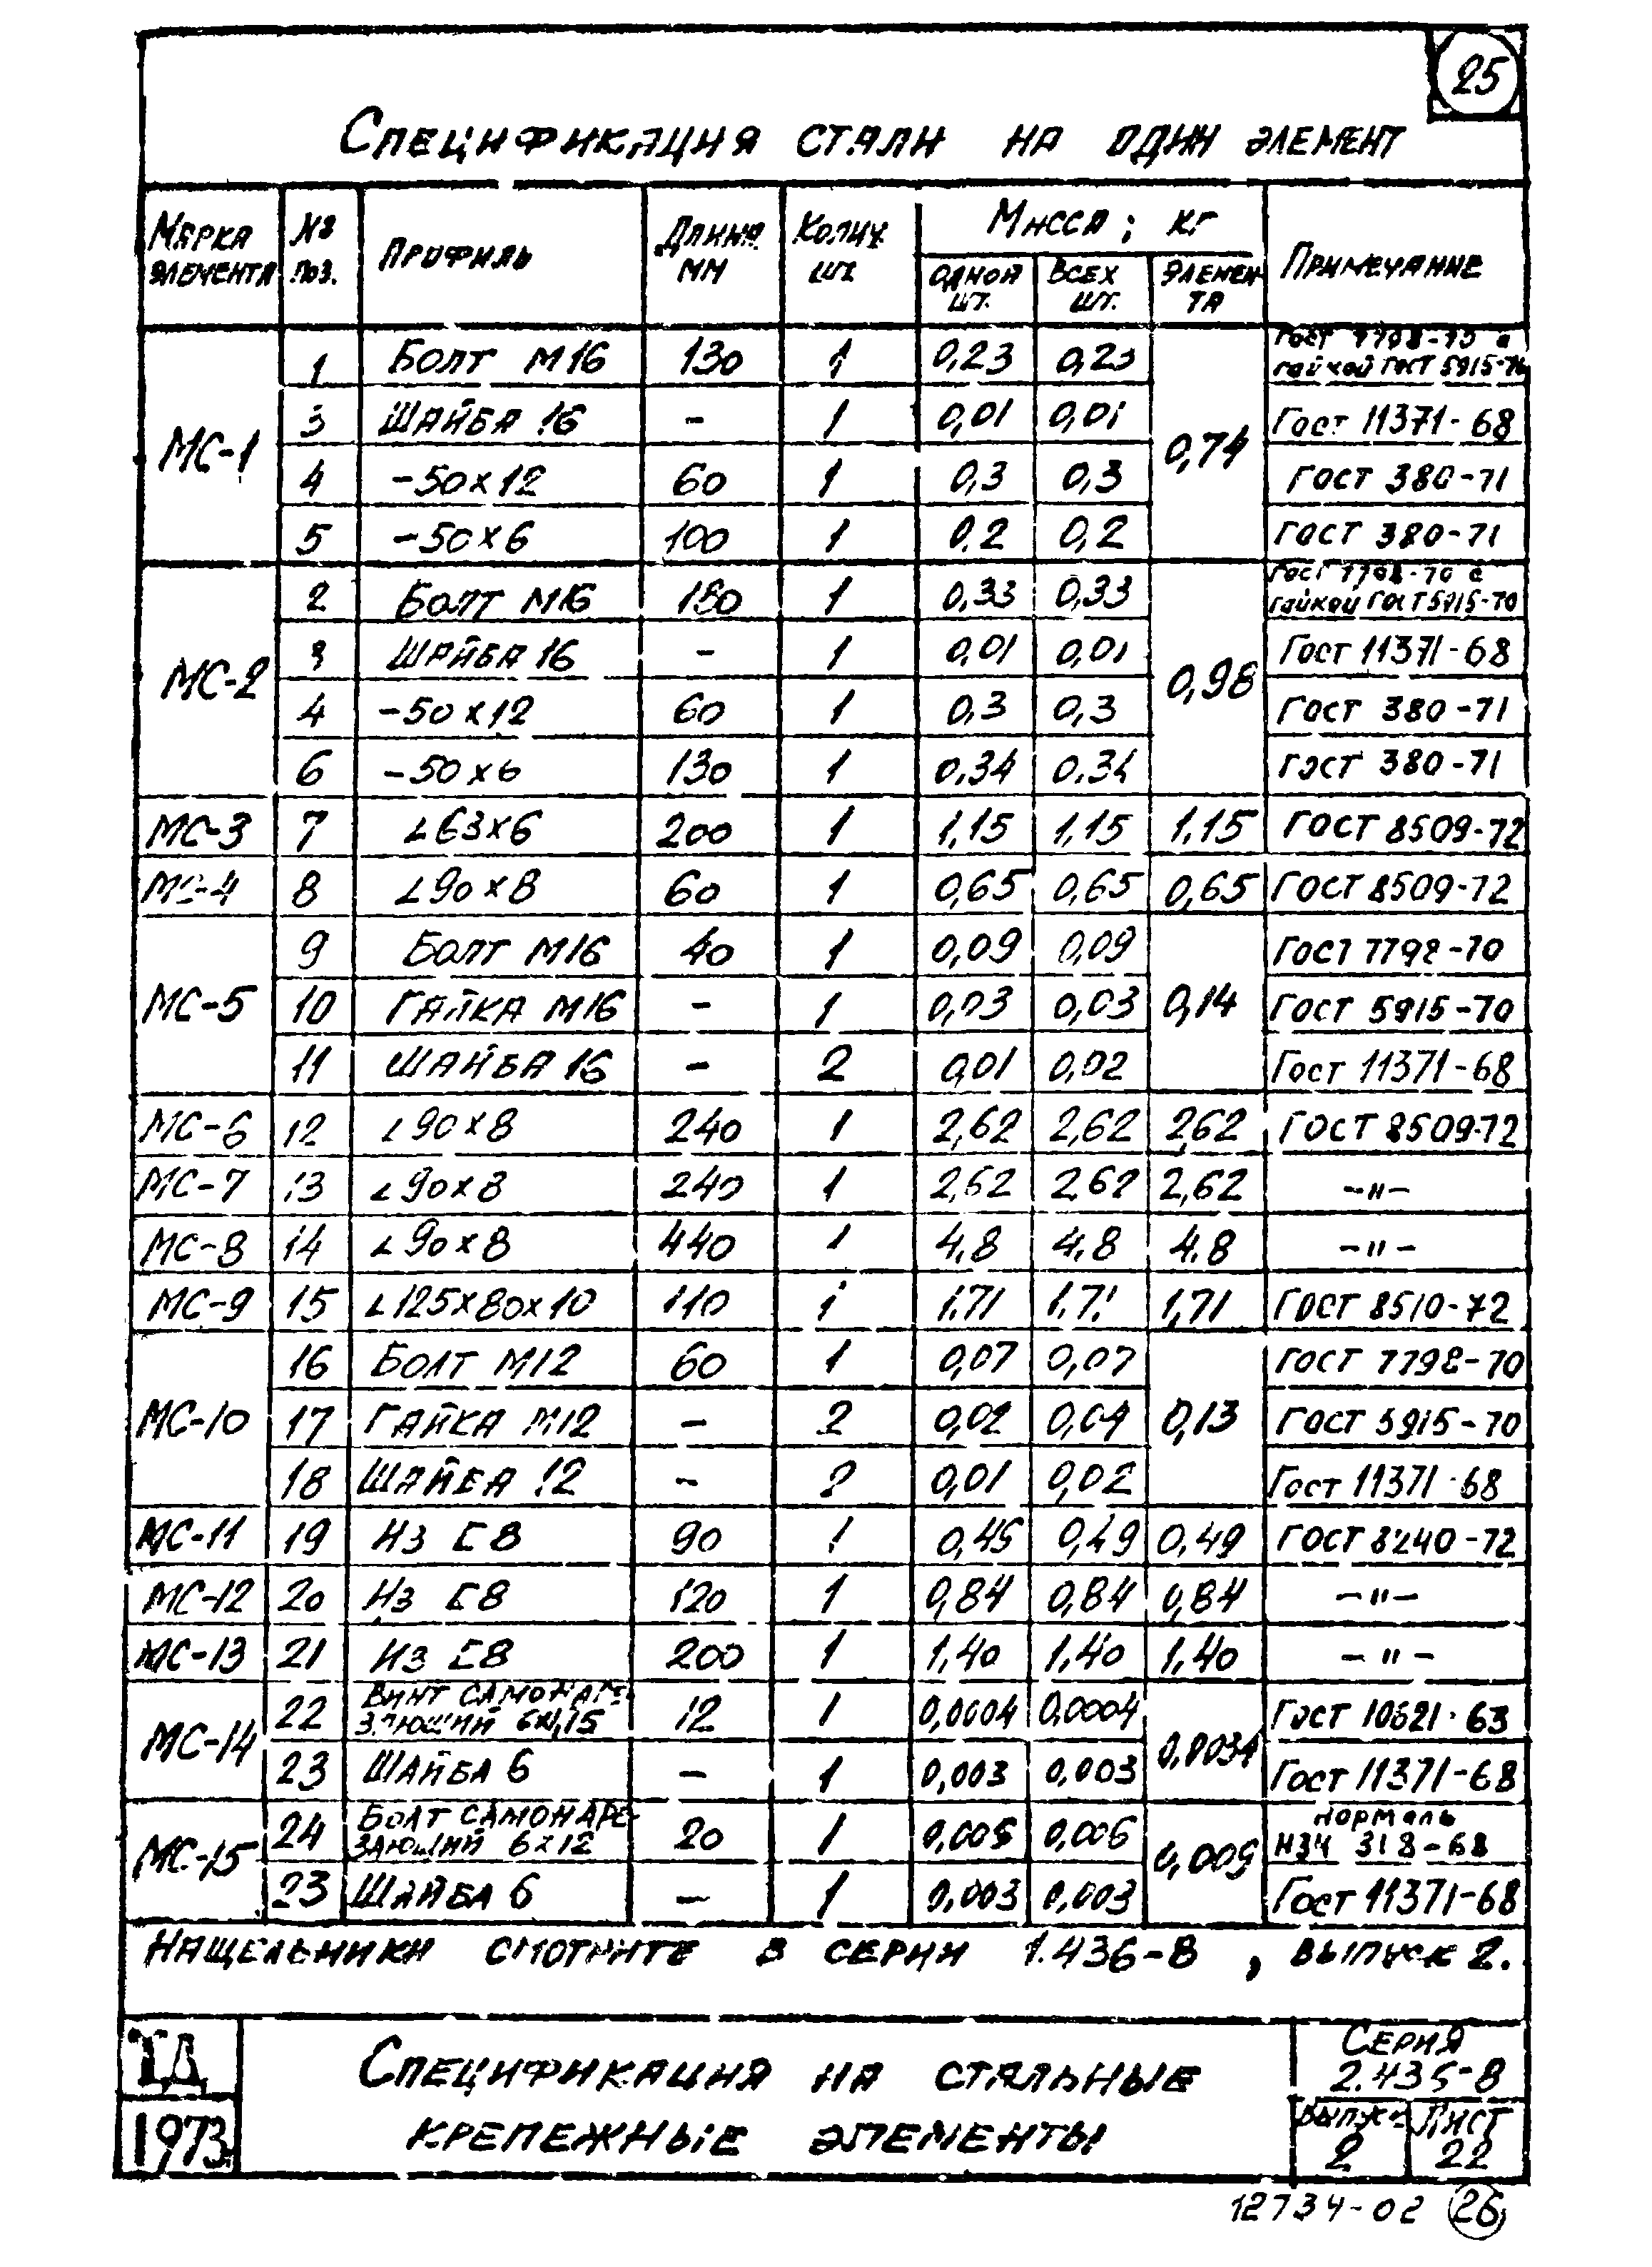 25
Спецификация стали на один элемент
Марка элемента | № поз. | Профиль | Длина мм | Колич. шт. | Масса, кг | Примечание
одной шт. | всех шт. | элемента
МС-1 | 1 | Болт М16 | 130 | 1 | 0,23 | 0,23 | 0,74 | Гост 7798-70 с гайкой Гост 5915-70
3 | Шайба 16 | - | 1 | 0,01 | 0,01 | Гост 11371-68
4 | -50×12 | 60 | 1 | 0,3 | 0,3 | ГОСТ 380-71
5 | -50×6 | 100 | 1 | 0,2 | 0,2 | ГОСТ 380-71
МС-2 | 2 | Болт М16 | 180 | 1 | 0,33 | 0,33 | 0,98 | Гост 7798-70 с гайкой Гост 5915-70
3 | Шайба 16 | - | 1 | 0,01 | 0,01 | Гост 11371-68
4 | -50×12 | 60 | 1 | 0,3 | 0,3 | ГОСТ 380-71
6 | -50×6 | 130 | 1 | 0,34 | 0,34 | ГОСТ 380-71
МС-3 | 7 | ∟63×6 | 200 | 1 | 1,15 | 1,15 | 1,15 | ГОСТ 8509-72
МС-4 | 8 | ∟90×8 | 60 | 1 | 0,65 | 0,65 | 0,65 | ГОСТ 8509-72
МС-5 | 9 | Болт М16 | 40 | 1 | 0,09 | 0,09 | 0,14 | ГОСТ 7798-70
10 | Гайка М16 | - | 1 | 0,03 | 0,03 | ГОСТ 5915-70
11 | Шайба 16 | - | 2 | 0,01 | 0,02 | Гост 11371-68
МС-6 | 12 | ∟90×8 | 240 | 1 | 2,62 | 2,62 | 2,62 | ГОСТ 8509-72
МС-7 | 13 | ∟90×8 | 240 | 1 | 2,62 | 2,62 | 2,62 | -"-
МС-8 | 14 | ∟90×8 | 440 | 1 | 4,8 | 4,8 | 4,8 | -"-
МС-9 | 15 | ∟125×80×10 | 110 | 1 | 1,71 | 1,71 | 1,71 | ГОСТ 8510-72
МС-10 | 16 | Болт М12 | 60 | 1 | 0,07 | 0,07 | 0,13 | ГОСТ 7798-70
17 | Гайка М12 | - | 2 | 0,02 | 0,04 | ГОСТ 5915-70
18 | Шайба 12 | - | 2 | 0,01 | 0,02 | Гост 11371-68
МС-11 | 19 | Из [8 | 90 | 1 | 0,49 | 0,49 | ГОСТ 8240-72
МС-12 | 20 | Из [8 | 120 | 1 | 0,84 | 0,84 | 0,84 | -"-
МС-13 | 21 | Из [8 | 200 | 1 | 1,40 | 1,40 | 1,40 | -"-
МС-14 | 22 | Винт самонарезающий | 12 | 1 | 0,0004 | 0,0004 | 0,0034 | Гост 10621-63
23 | Шайба 6 | - | 1 | 0,003 | 0,003 | Гост 11371-68
МС-15 | 24 | Болт самонарезающий 6×12 | 20 | 1 | 0,006 | 0,006 | 0,009 | нормаль НЗЧ 318-68
23 | Шайба 6 | - | 1 | 0,003 | 0,003 | Гост 11371-68
Нащельники смотрите в серии 1.436-8, выпуск 2.
ТД
1973г.
Спецификация на стальные
крепежные элементы
Серия
2.435-8
Выпуск | Лист
2 | 22
12734-02 26